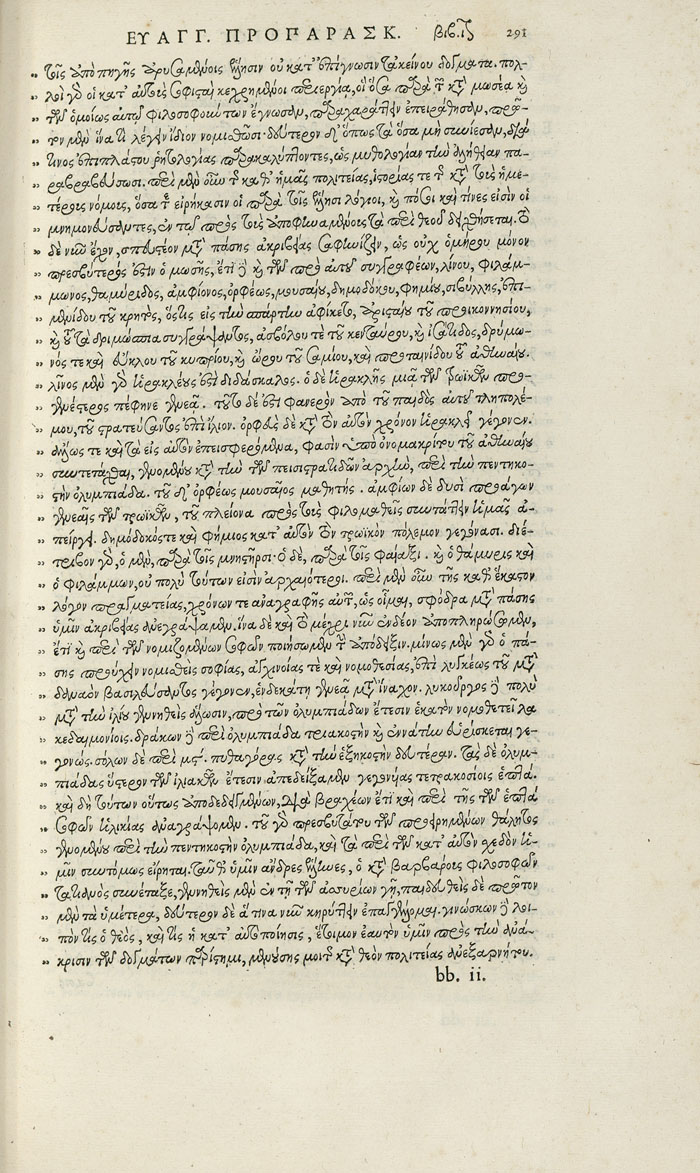 ΕΥΑΓΓ. ΠΡΟΠΑΡΑΣΚ. 291
τοῖς ἀπὸ πηγῆς ἀρυσαμένοις ἕλλησιν οὐ κατ' ἐπίγνωσιν τἀκείνου δόγματα. πολ-
λοὶ γὰρ οἱ κατ' αὐτοὺς σοφισταὶ κεχρημένοι περιεργίᾳ, οἱ ὅσα παρὰ τῶν κατὰ μωσέα καὶ
τῶν ὁμοίως αὐτῷ φιλοσοφούντων ἔγνωσαν, παραχαράττειν ἐπειράθησαν, πρῶ-
τον μὲν ἵνα τι λέγειν ἴδιον νομισθῶσι· δεύτερον δ' ὅπως τὰ ὅσα μὴ συνίεσαν, διά
τινος ἐπιπλάστου ῥητολογίας παρακαλύπτοντες, ὡς μυθολογίαν τὴν ἀλήθειαν πα-
ραβραβεύσωσι. περὶ μὲν οὖν τῆς καθ' ἡμᾶς πολιτείας, ἱστορίας τε τῆς κατὰ τοὺς ἡμε-
τέρους νόμους, ὅσα τε εἰρήκασιν οἱ παρὰ τοῖς ἕλλησι λόγιοι, καὶ πόσοι καὶ τίνες εἰσὶν οἱ
μνημονεύσαντες, ἐν τῷ πρὸς τοὺς ἀποφηναμένους τὰ περὶ θεοῦ δειχθήσεται. τὸ
δὲ νῦν ἔχον, σπευστέον μετὰ πάσης ἀκριβείας σαφηνίζειν, ὡς οὐχ ὁμήρου μόνον
πρεσβύτερός ἐστιν ὁ μωσῆς, ἔτι δὲ καὶ τῶν πρὸ αὐτοῦ συγγραφέων, λίνου, φιλάμ-
μωνος, θαμύριδος, ἀμφίονος, ὀρφέως, μουσαίου, δημοδόκου, φημίου, σιβύλλης, ἐπι-
μενίδου τοῦ κρητὸς, ὅστις εἰς τὴν σπάρτην ἀφίκετο, ἀρισταίου τοῦ προικοννησίου,
καὶ τοῦ τὰ ἀριμάσπια συγγράψαντος, ἀσβόλου τε τοῦ κενταύρου, καὶ ἰσάτιδος, δρύμω-
νός τε καὶ εὔκλου τοῦ κυπρίου, καὶ ὥρου τοῦ σαμίου, καὶ προναπίδου τοῦ ἀθηναίου.
λῖνος μὲν γὰρ ἡρακλέους ἐστὶ διδάσκαλος. ὁ δὲ ἡρακλῆς μιᾷ τῶν τρωϊκῶν προ-
γενέστερος πέφηνε γενεᾷ. τοῦτο δέ ἐστι φανερὸν ἀπὸ τοῦ παιδὸς αὐτοῦ τληπολέ-
μου, τοῦ στρατεύσαντος ἐπὶ ἴλιον. ὀρφεὺς δὲ κατὰ τὸν αὐτὸν χρόνον ἡρακλεῖ γέγονεν.
ἄλλως τε καὶ τὰ εἰς αὐτὸν ἐπεισφερόμενα, φασὶν ὑπὸ ὀνομακρίτου τοῦ ἀθηναίου
συντετάχθαι, γενομένου κατὰ τὴν τῶν πεισιστρατιδῶν ἀρχὴν, περὶ τὴν πεντηκο-
στὴν ὀλυμπιάδα. τοῦ δ' ὀρφέως μουσαῖος μαθητής. ἀμφίων δὲ δυσὶ προάγων
γενεαῖς τῶν τρωϊκῶν, τοῦ πλείονα πρὸς τοὺς φιλομαθεῖς συντάττειν ἡμᾶς ἀ-
πείργει. δημόδοκός τε καὶ φήμιος κατ' αὐτὸν τὸν τρωϊκὸν πόλεμον γεγόνασι. διέ-
τριβον γὰρ, ὁ μὲν, παρὰ τοῖς μνηστῆρσι· ὁ δὲ, παρὰ τοῖς φαίαξι. καὶ ὁ θάμυρις καὶ
ὁ φιλάμμων, οὐ πολὺ τούτων εἰσὶν ἀρχαιότεροι. περὶ μὲν οὖν τῆς καθ' ἕκαστον
λόγον πραγματείας, χρόνων τε ἀναγραφῆς αὐτῶν, ὡς οἶμαι, σφόδρα μετὰ πάσης
ὑμῖν ἀκριβείας ἀνεγράψαμεν. ἵνα δὲ καὶ τὸ μέχρι νῦν ἐνδέον ἀποπληρώσωμεν,
ἔτι καὶ περὶ τῶν νομιζομένων σοφῶν ποιήσωμαι τὴν ἀπόδειξιν. μίνως μὲν γὰρ ὁ πά-
σης προύχειν νομισθεὶς σοφίας, ἀγχινοίας τε καὶ νομοθεσίας, ἐπὶ λυγκέως τοῦ μετὰ
δαναὸν βασιλεύσαντος γέγονεν, ἑνδεκάτῃ γενεᾷ μετὰ ἴναχον. λυκοῦργος δὲ πολὺ
μετὰ τὴν ἰλίου γεννηθεὶς ἅλωσιν, πρὸ τῶν ὀλυμπιάδων ἔτεσιν ἑκατὸν νομοθετεῖ λα
κεδαιμονίοις. δράκων δὲ περὶ ὀλυμπιάδα τριακοστὴν καὶ ἐννάτην εὑρίσκεται γε-
γονώς. σόλων δὲ περὶ μς΄. πυθαγόρας κατὰ τὴν ἑξηκοστὴν δευτέραν. τὰς δὲ ὀλυμ-
πιάδας ὕστερον τῶν ἰλιακῶν ἔτεσιν ἀπεδείξαμεν γεγονυίας τετρακοσίοις ἑπτά.
καὶ δὴ τούτων οὕτως ἀποδεδειγμένων, διὰ βραχέων ἔτι καὶ περὶ τῆς τῶν ἑπτὰ
σοφῶν ἡλικίας ἀναγράψομεν. τοῦ γὰρ πρεσβυτάτου τῶν προειρημένων θάλητος
γενομένου περὶ τὴν πεντηκοστὴν ὀλυμπιάδα, καὶ τὰ περὶ τῶν κατ' αὐτὸν σχεδὸν ἡ-
μῖν συντόμως εἴρηται. ταῦθ' ὑμῖν ἄνδρες ἕλληνες, ὁ κατὰ βαρβάρους φιλοσοφῶν
τατιανὸς συνέταξε, γεννηθεὶς μὲν ἐν τῇ τῶν ἀσσυρίων γῇ, παιδευθεὶς δὲ πρῶτον
μὲν τὰ ὑμέτερα, δεύτερον δὲ ἅτινα νῦν κηρύττειν ἐπαγγέλλομαι. γινώσκων δὲ λοι-
πὸν τίς ὁ θεὸς, καὶ τίς ἡ κατ' αὐτὸν ποίησις, ἕτοιμον ἐμαυτὸν ὑμῖν πρὸς τὴν ἀνά-
κρισιν τῶν δογμάτων παρίστημι, μενούσης μοι τῆς κατὰ θεὸν πολιτείας ἀνεξαρνήτου.
bb. ii.